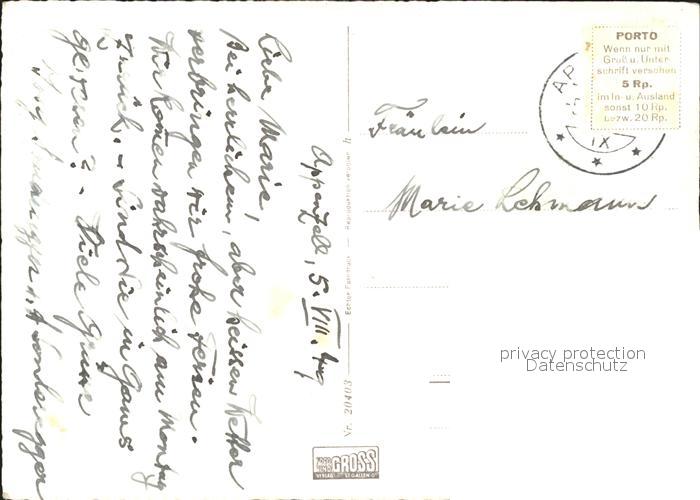 Appenzell, 5. VIII. Aug
Liebe Marie!
Bei herrlichem, aber heissen Wetter
verbringen wir frohe Ferien.
Wir kommen wahrscheinlich am Montag
zurück. - Sind Sie in Gams
gewesen? - Viele Grüsse
Sonderegger
Fräulein
Marie Lehmann
PORTO
Wenn nur mit
Gruß u. Unter-
schrift versehen
5 Rp.
im In- u. Ausland
sonst 10 Rp.
bezw. 20 Rp.
AP
IX
Nr. 20403
Echte Reproduktion verboten
GROSS
VERLAG ST. GALLEN
privacy protection
Datenschutz